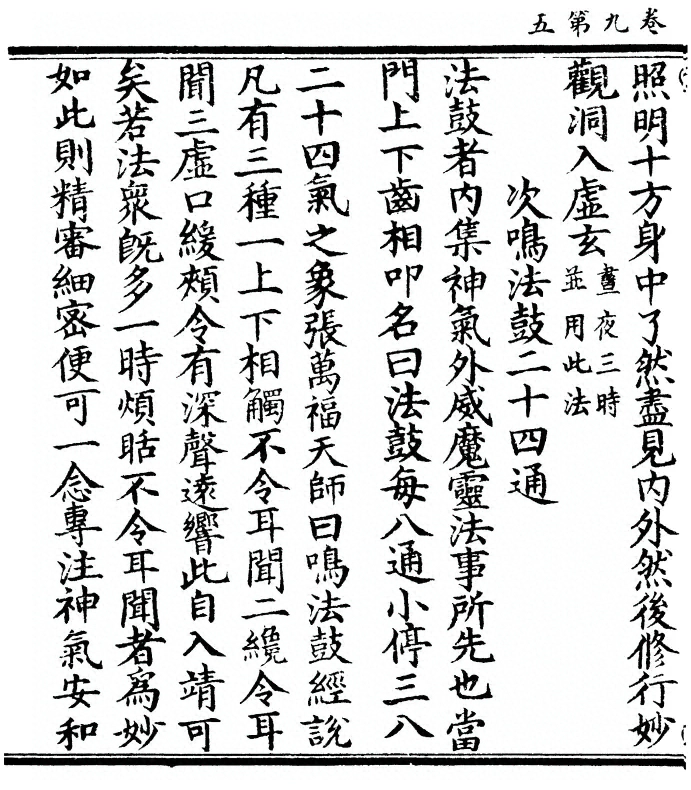 卷九第五
照明十方身中了然盡見内外然後修行妙
觀洞入虛玄晝夜三時並用此法
次鳴法鼓二十四通
法鼓者内集神氣外威魔靈法事所先也當
門上下齒相叩名曰法鼓每八通小停三八
二十四氣之象張萬福天師曰鳴法鼓經說
凡有三種一上下相觸不令耳聞二纔令耳
聞三虛口緩頰令有深聲遠響此自入靖可
矣若法衆旣多一時煩聒不令耳聞者爲妙
如此則精審細密便可一念專注神氣安和